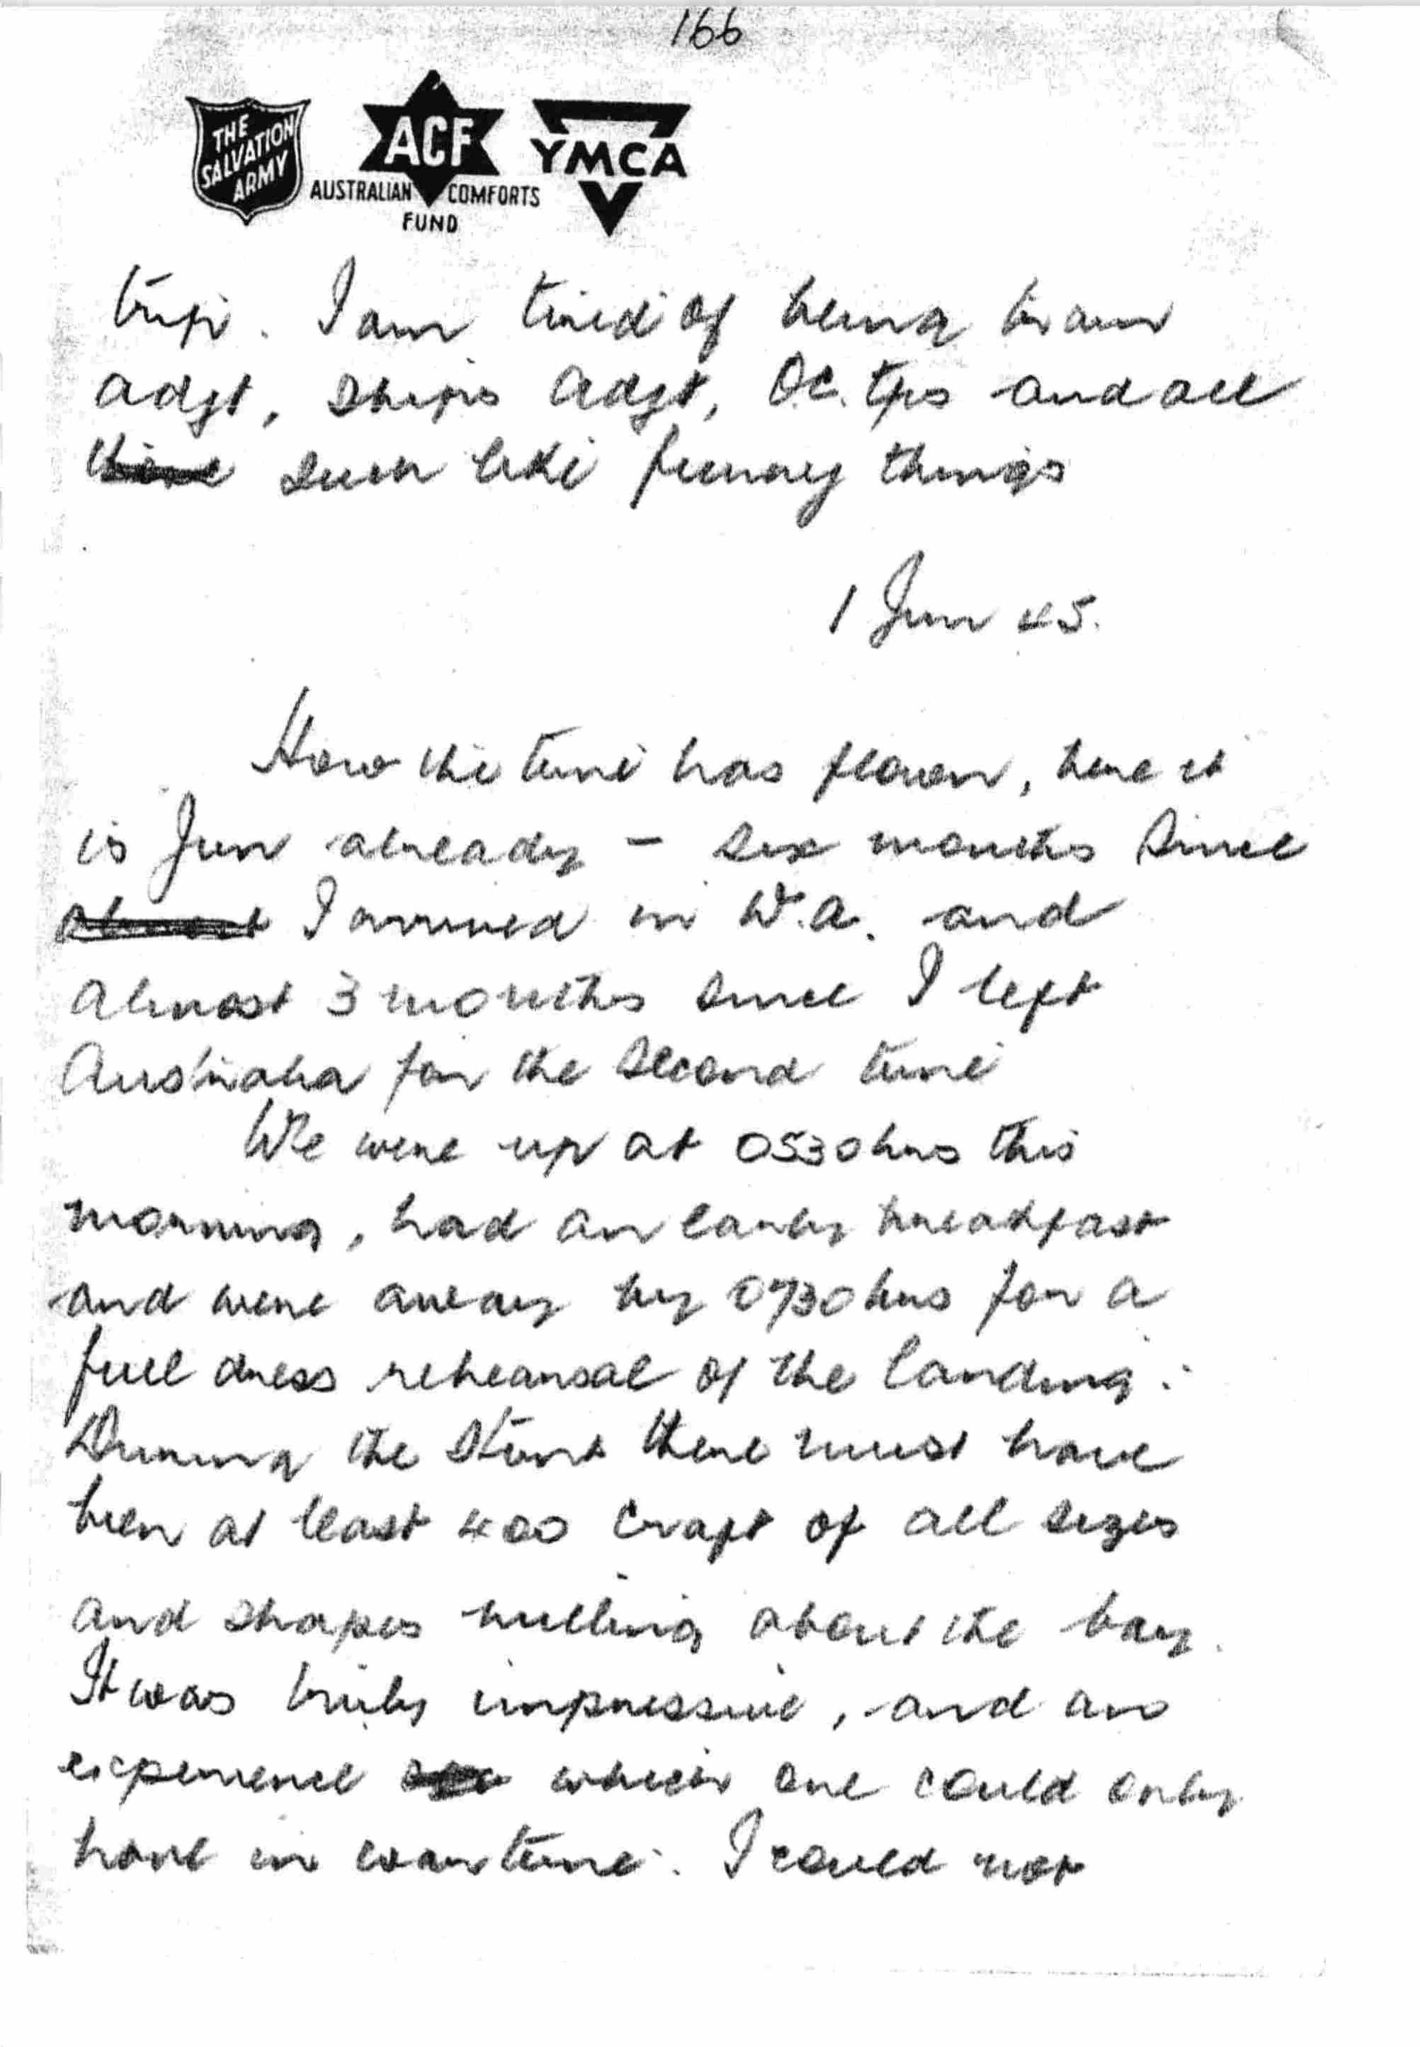 166
THE
SALVATION
ARMY
ACF
AUSTRALIAN COMFORTS
FUND
YMCA
trip. I am tired of being train
adjt, ships adjt, O.C. tps and all
such like funny things
1 Jun 45.
How the time has flown, here it
is Jun already - six months since
almost I arrived in W.A. and
almost 3 months since I left
Australia for the second time
We were up at 0530hrs this
morning, had an early breakfast
and were away by 0730hrs for a
full dress rehearsal of the landing.
During the stunt there must have
been at least 400 craft of all sizes
and shapes milling about the bay.
It was truly impressive, and an
experience which one could only
have in wartime. I could not